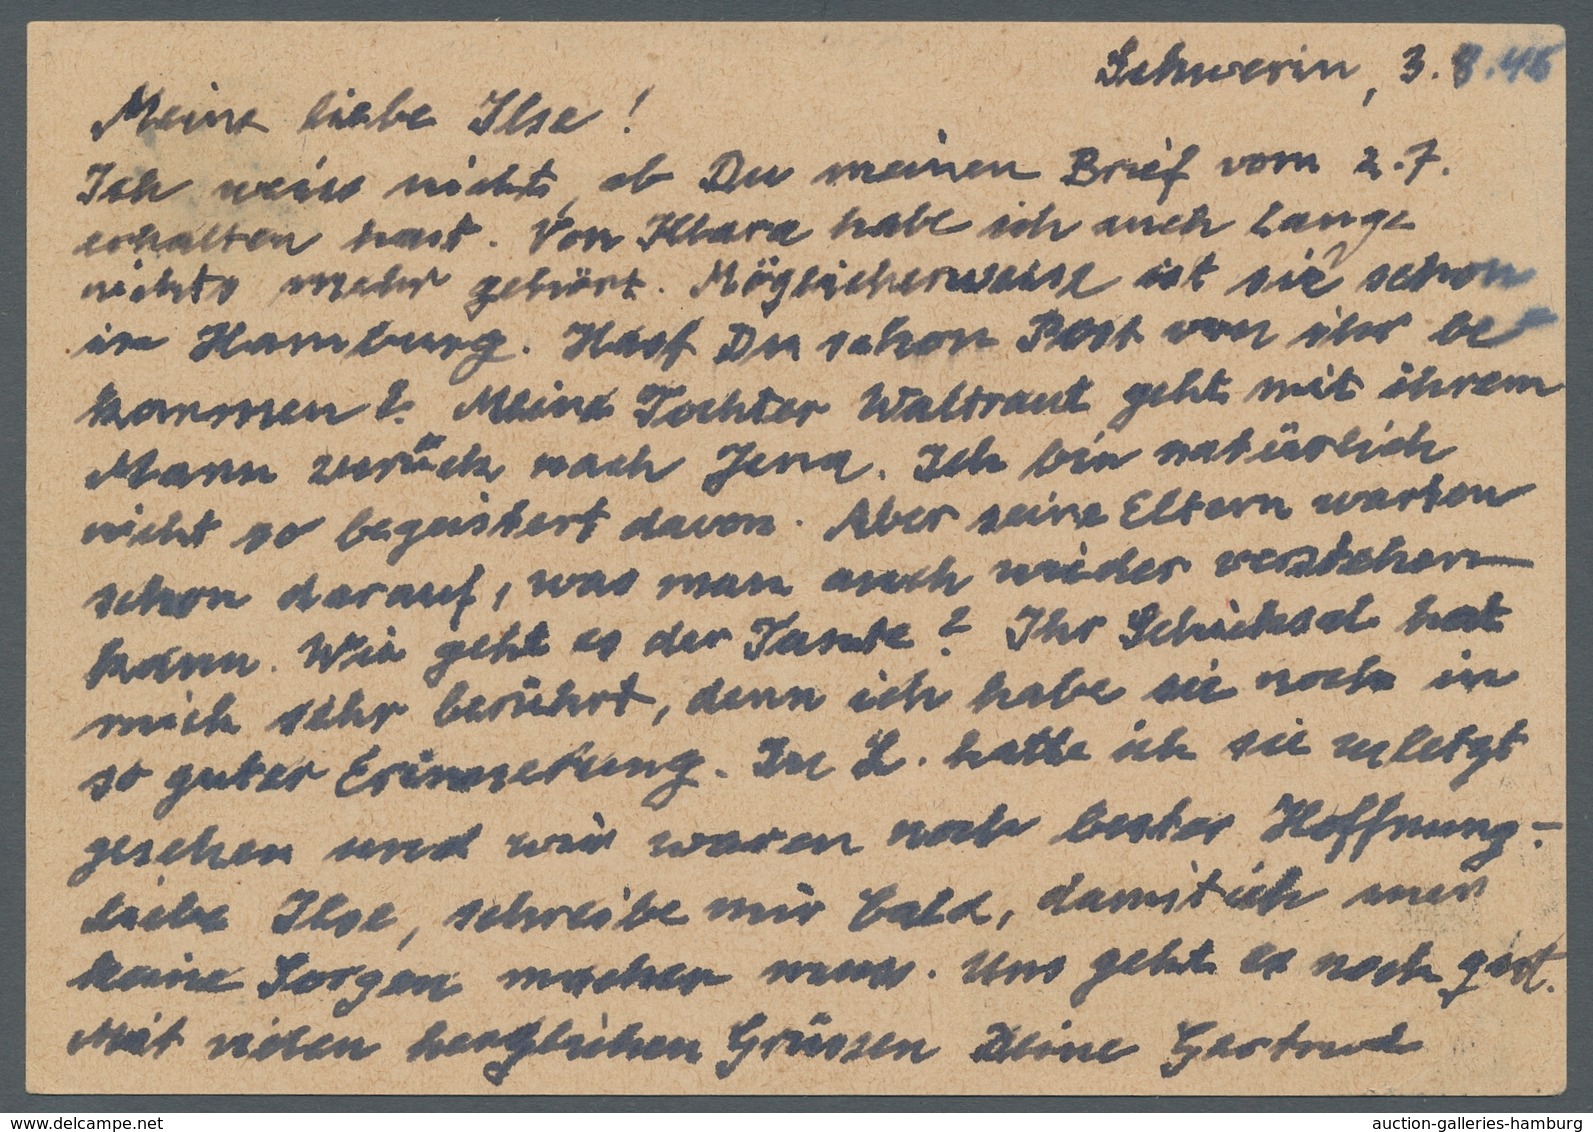 Schwerin, 3. 8.46
Meine liebe Ilse!
Ich weiss nicht, ob Du meinen Brief vom 2.7.
erhalten hast. Von Klara habe ich auch lange
nichts mehr gehört. Möglicherweise ist sie schon
in Hamburg. Hast Du schon Post von ihr be-
kommen? Meine Tochter Waltraut geht mit ihrem
Mann zurück nach Jena. Ich bin natürlich
nicht so begeistert davon. Aber seine Eltern warten
schon darauf, was man auch wieder verstehen
kann. Wie geht es der Tante? Ihr Schicksal hat
mich sehr berührt, denn ich habe sie noch in
so guter Erinnerung. In L. hatte ich sie zuletzt
gesehen und wir waren noch bester Hoffnung -
liebe Ilse, schreibe mir bald, damit ich mir
keine Sorgen machen muss. Uns geht es noch gut.
Mit vielen herzlichen Grüssen Deine Gertrud
delcampe.net
auction-galleries-hamburg